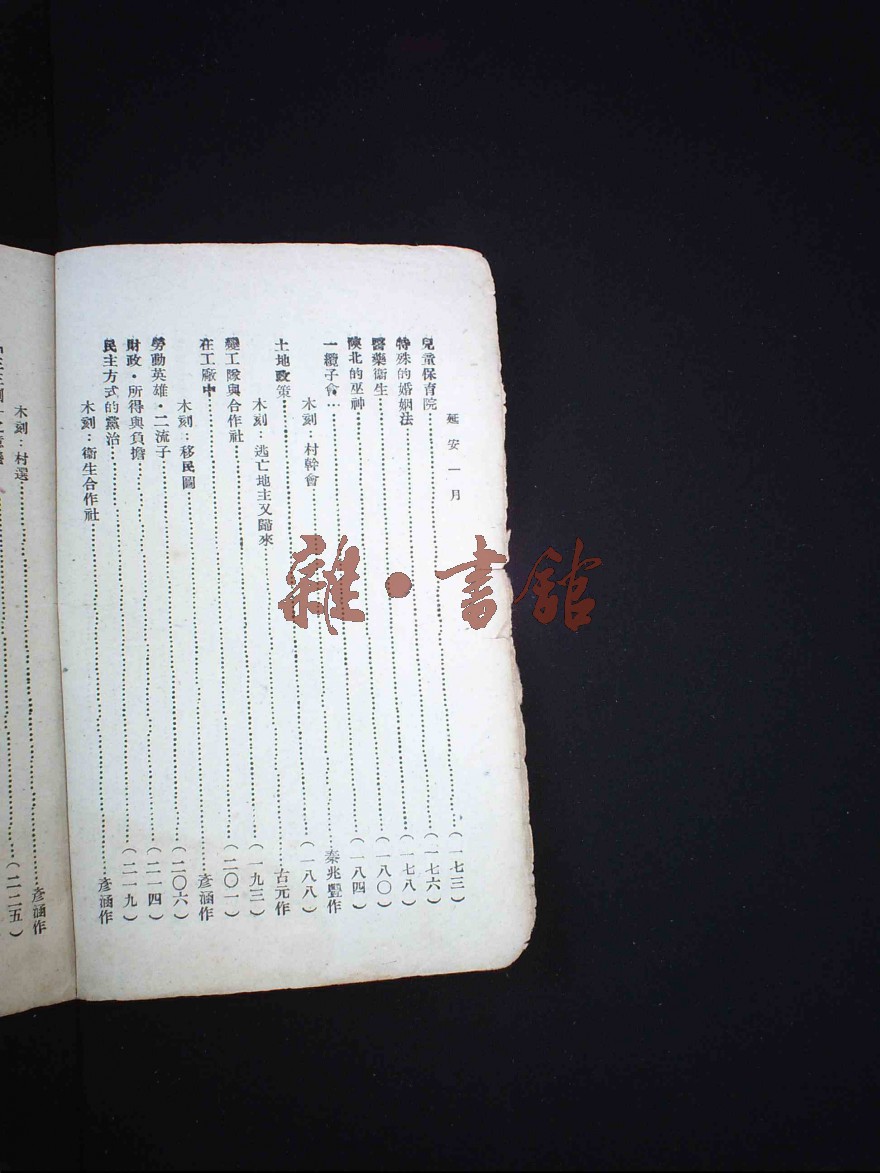 延安一月
兒童保育院……(一七三)
特殊的婚姻法……(一七六)
醫藥衛生……(一七八)
陝北的巫神……(一八〇)
一纜子會……(一八四)
木刻：村幹會……秦兆豐作
土地政策……(一八八)
木刻：逃亡地主又歸來……古元作
變工隊與合作社……(一九三)
在工廠中……(二〇一)
木刻：移民圖……彥涵作
勞動英雄・二流子……(二〇六)
財政・所得與負擔……(二一四)
民主方式的黨治……(二一九)
木刻：衛生合作社……彥涵作
木刻：村選……彥涵作
(二二五)
雜・書館